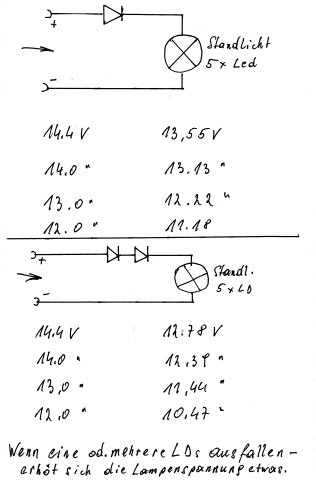 +
Standlicht
5 x Led
-
14.4 V 13,55 V
14.0 " 13.13 "
13.0 " 12.22 "
12.0 " 11.18
+
Standl.
5 x LD
-
14.4 V 12.78 V
14.0 " 12.39 "
13,0 " 11,44 "
12,0 " 10.47 "
Wenn eine od. mehrere LDs ausfallen –
erhöt sich die Lampenspannung etwas.